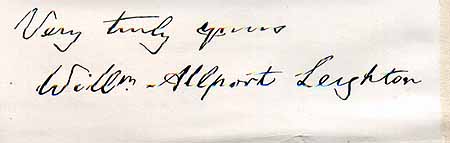 Very truly yours
Willm. Allport Leighton